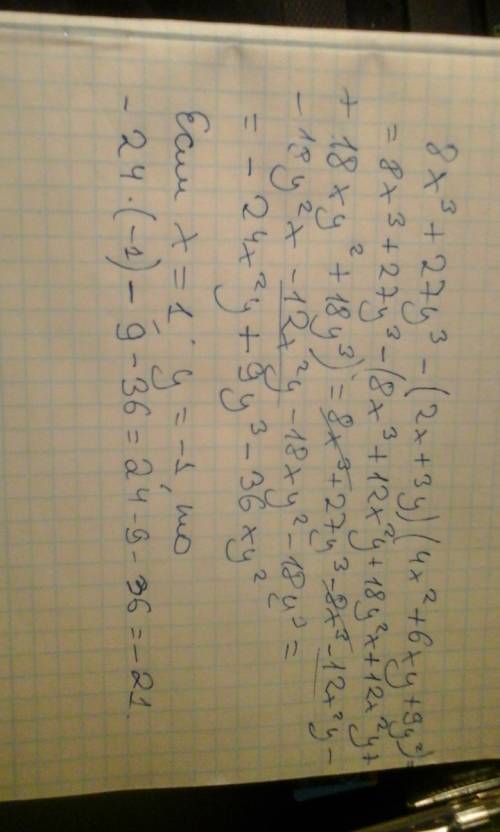 8x³ + 27y³ - (2x + 3y)(4x² + 6xy + 9y²) =
= 8x³ + 27y³ - (8x³ + 12x²y + 18y²x + 12x²y +
+ 18xy² + 18y³) = 8x³ + 27y³ - 8x³ - 12x²y -
- 18y²x - 12x²y - 18xy² - 18y³ =
= - 24x²y + 9y³ - 36xy²
Если x = 1; y = -1, то
- 24 · (-1) - 9 - 36 = 24 - 9 - 36 = -21.